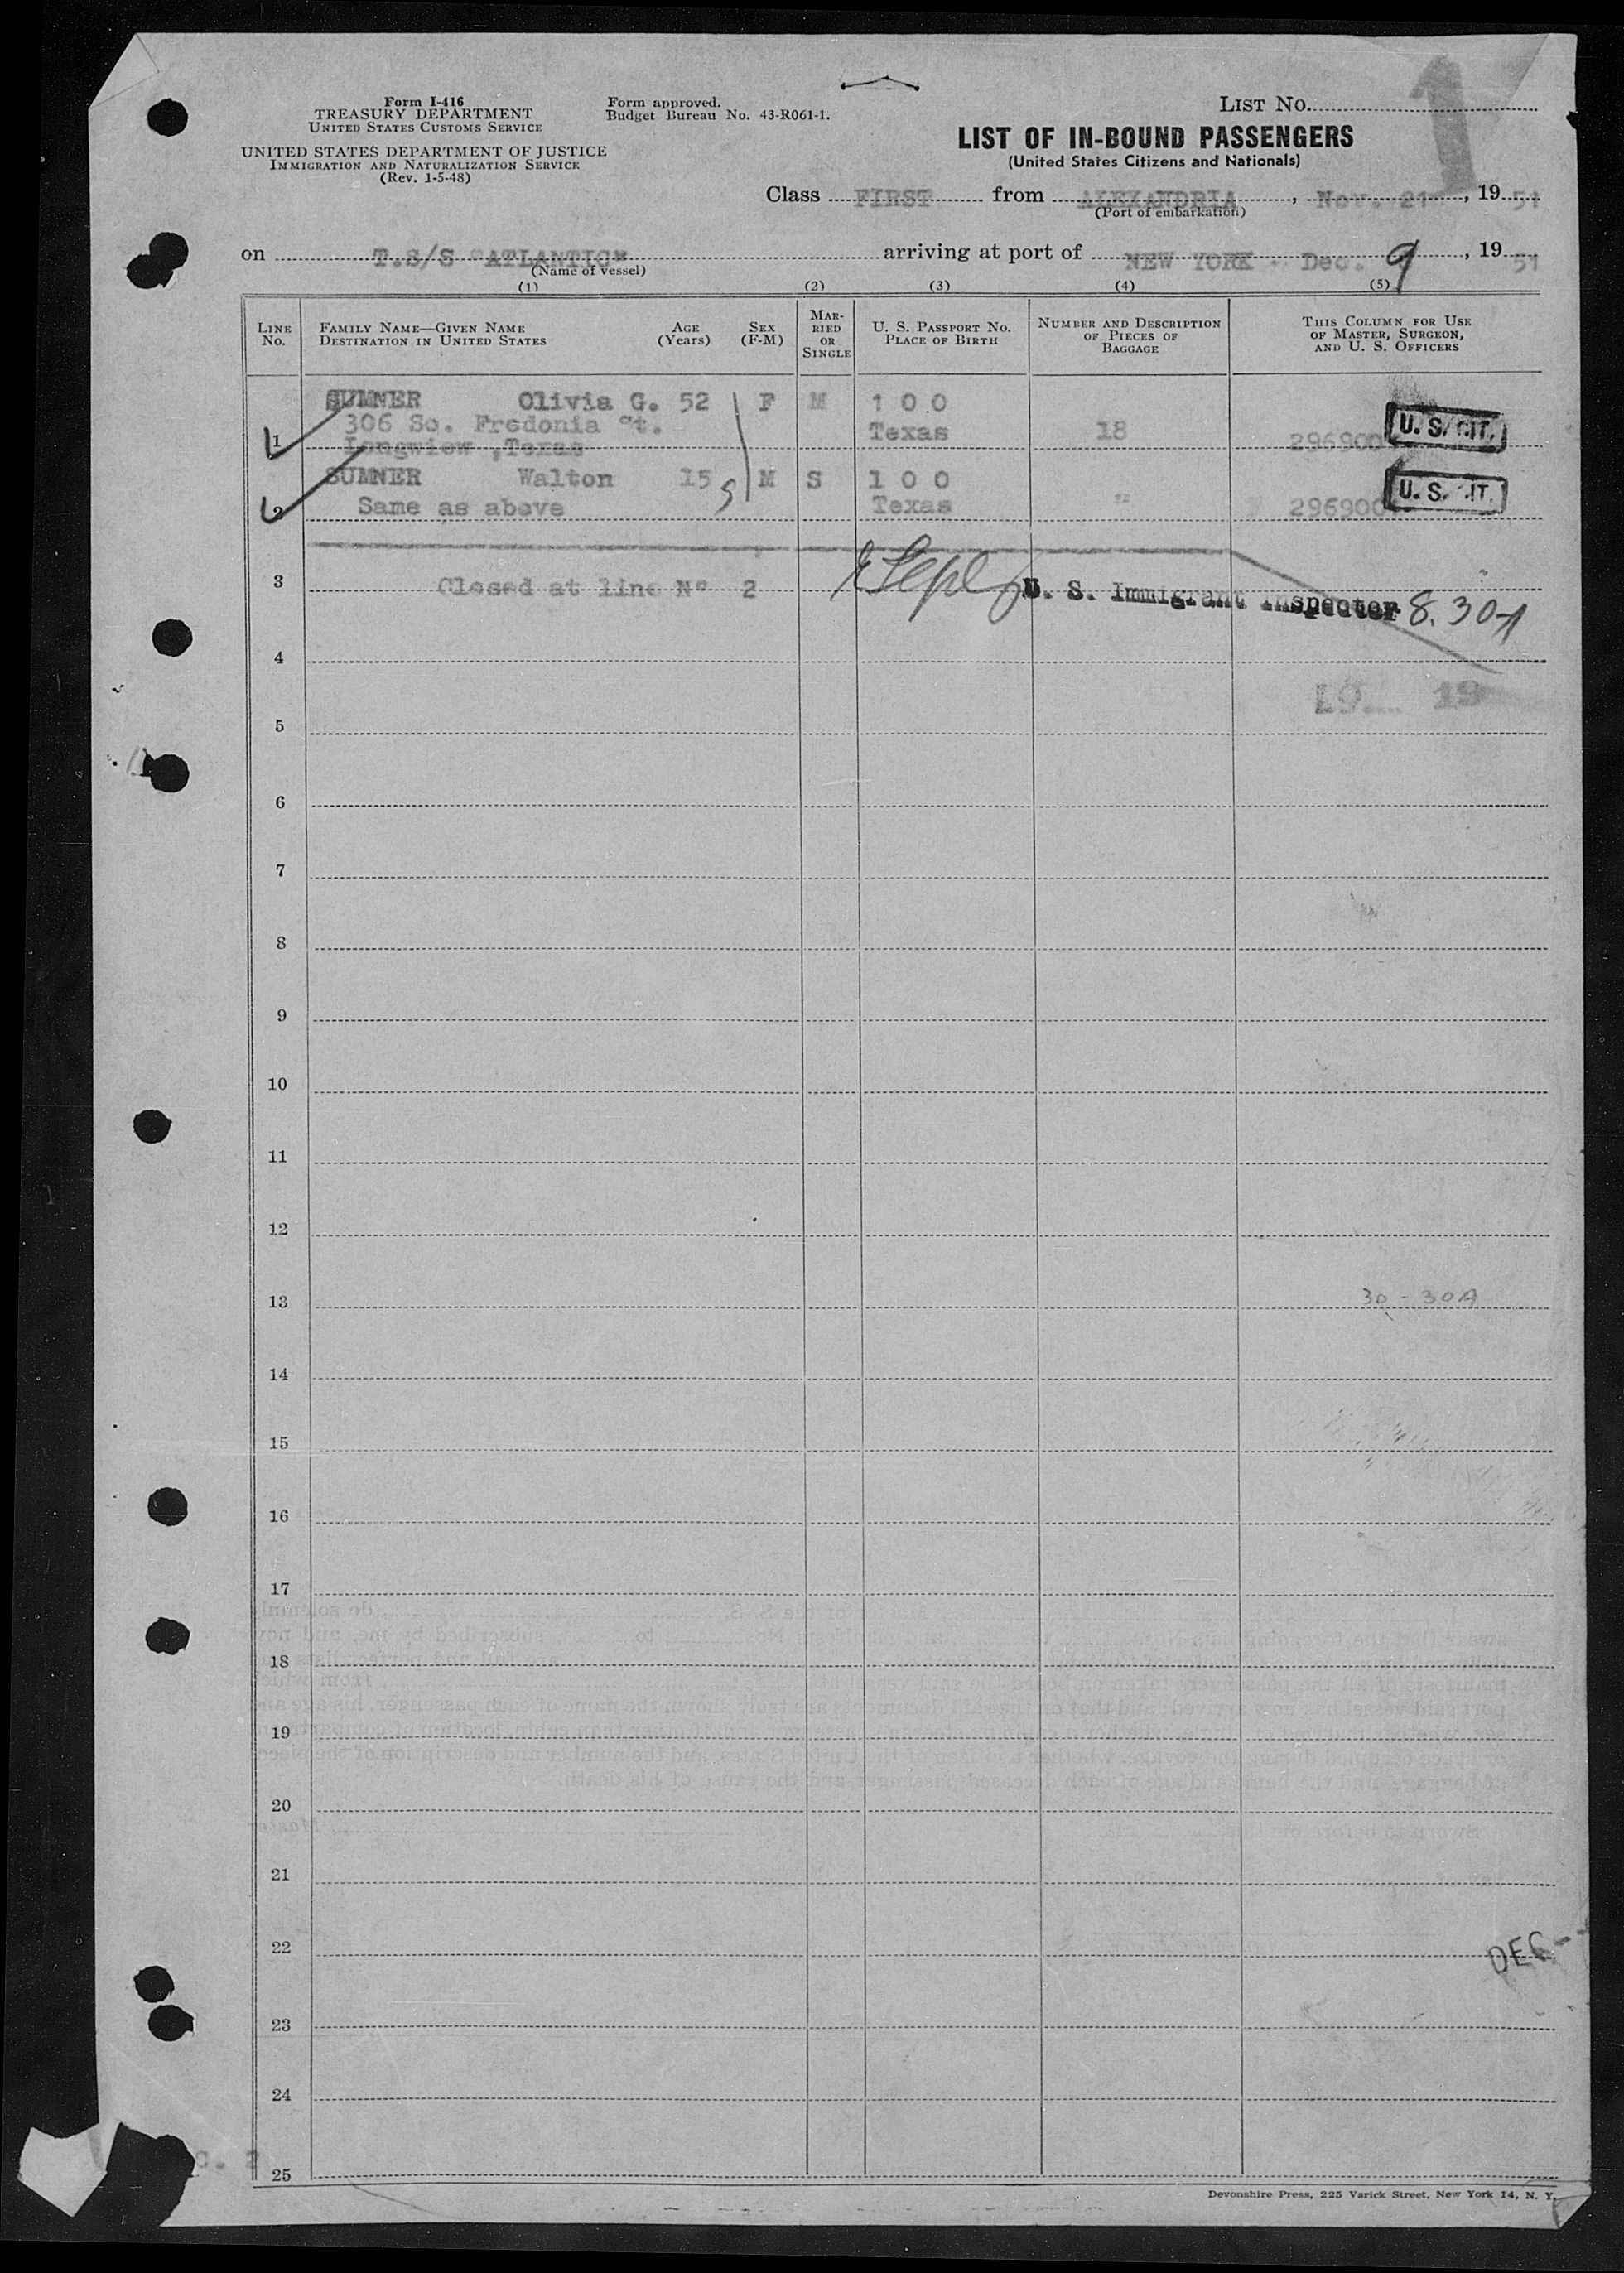 Form I-416
TREASURY DEPARTMENT
UNITED STATES CUSTOMS SERVICE
UNITED STATES DEPARTMENT OF JUSTICE
IMMIGRATION AND NATURALIZATION SERVICE
(Rev. 1-5-48)
Form approved.
Budget Bureau No. 43-R061-1.
LIST NO.
1
LIST OF IN-BOUND PASSENGERS
(United States Citizens and Nationals)
Class FIRST from ALEXANDRIA, Nov. 21, 1951
(Port of embarkation)
on T.S/S "ATLANTIC" arriving at port of NEW YORK - Dec. 9, 1951
(Name of vessel)
(1) (2) (3) (4) (5)
LINE NO. FAMILY NAME—GIVEN NAME DESTINATION IN UNITED STATES AGE (Years) SEX (F-M) MARRIED OR SINGLE U. S. PASSPORT NO. PLACE OF BIRTH NUMBER AND DESCRIPTION OF PIECES OF BAGGAGE THIS COLUMN FOR USE OF MASTER, SURGEON, AND U. S. OFFICERS
SUMNER Olivia G. 52 F M 1 0 0
306 So. Fredonia St. Texas 18 296900 U. S. CIT.
1 Longwiew ,Texas
SUMNER Walton 15 M S 1 0 0 U. S. CIT.
2 Same as above Texas " 296900
3 Closed at line N° 2 U. S. Immigrant Inspector 8.30A
4
19
5
6
7
8
9
10
11
12
13 30 - 30A
14
15
16
17
18
19
20
21
22 DEC -
23
24
25
Devonshire Press, 225 Varick Street, New York 14, N. Y.